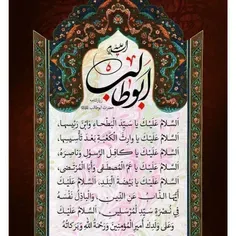 ابوطالب
اَلسَّلامُ عَلَيْكَ يا سَيِّدَ الْبَطْحاءِ وَابْنَ رَئيسِها،
اَلسَّلامُ عَلَيْكَ يا وارِثَ الْكَعْبَةِ بَعْدَ تَأْسيسِها،
اَلسَّلامُ عَلَيْكَ يا كافِلَ الرَّسُولِ وَناصِرَهُ،
اَلسَّلامُ عَلَيْكَ يا عَمَّ الْمُصْطَفى وَاَبَا الْمُرْتَضى،
اَلسَّلامُ عَلَيْكَ يا بَيْضَةَ الْبَلَدِ، اَلسَّلامُ عَلَيْكَ
اَيُّهَا الذّابُّ عَنِ الدّينِ، وَالْباذِلُ نَفْسَهُ
فى نُصْرَةِ سَيِّدِ الْمُرْسَلينَ، اَلسَّلامُ عَلَيْكَ
وَعَلى وَلَدِكَ اَميرِ الْمُؤْمِنينَ وَرَحْمَةُ اللهِ وَبَرَكاتُهُ